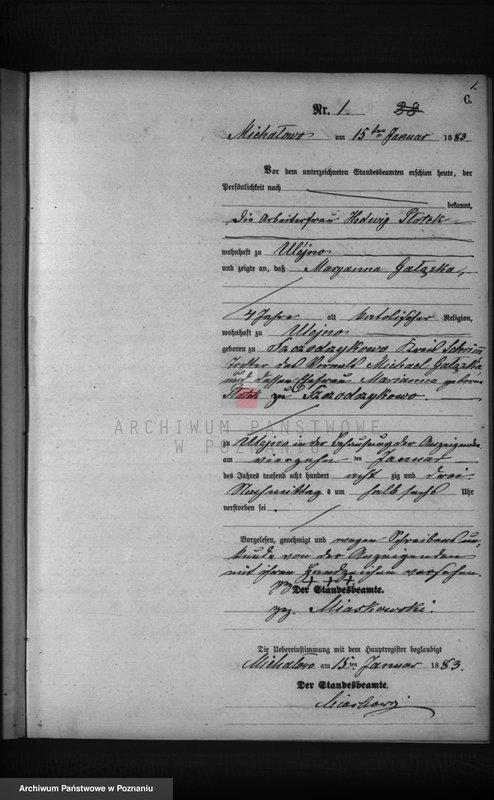 1.
C.
Nr. 1. 28
Michałowo am 15ten Januar 1883.
Vor dem unterzeichneten Standesbeamten erschien heute, der
Persönlichkeit nach
bekannt,
die Arbeiterfrau Hedwig
wohnhaft zu Ulejno
und zeigte an, daß Maryanna Gałązka,
4 Jahre alt katolischer Religion,
wohnhaft zu Ulejno
geboren zu Szczodrzykowo Kreis Schrimm
Tochter des Michael Gałązka
und dessen Ehefrau Marianna geborne
zu Szczodrzykowo.
ARCHIWUM PAŃSTWOWE
W POZNANIU
zu Ulejno in der Behausung der Anzeigenden
am vierzehn ten Januar
des Jahres tausend acht hundert acht zig und drei
Nachmittag s um halb sechs Uhr
verstorben sei
Vorgelesen, genehmigt und wegen Schreibens un-
kunde von der Anzeigenden
mit ihren Handzeichen versehen.
+++
Der Standesbeamte.
gez. Miaskowski.
Die Uebereinstimmung mit dem Hauptregister beglaubigt
Michałowo am 15ten Januar 1883.
Der Standesbeamte.
Miaskowski
Archiwum Państwowe w Poznaniu